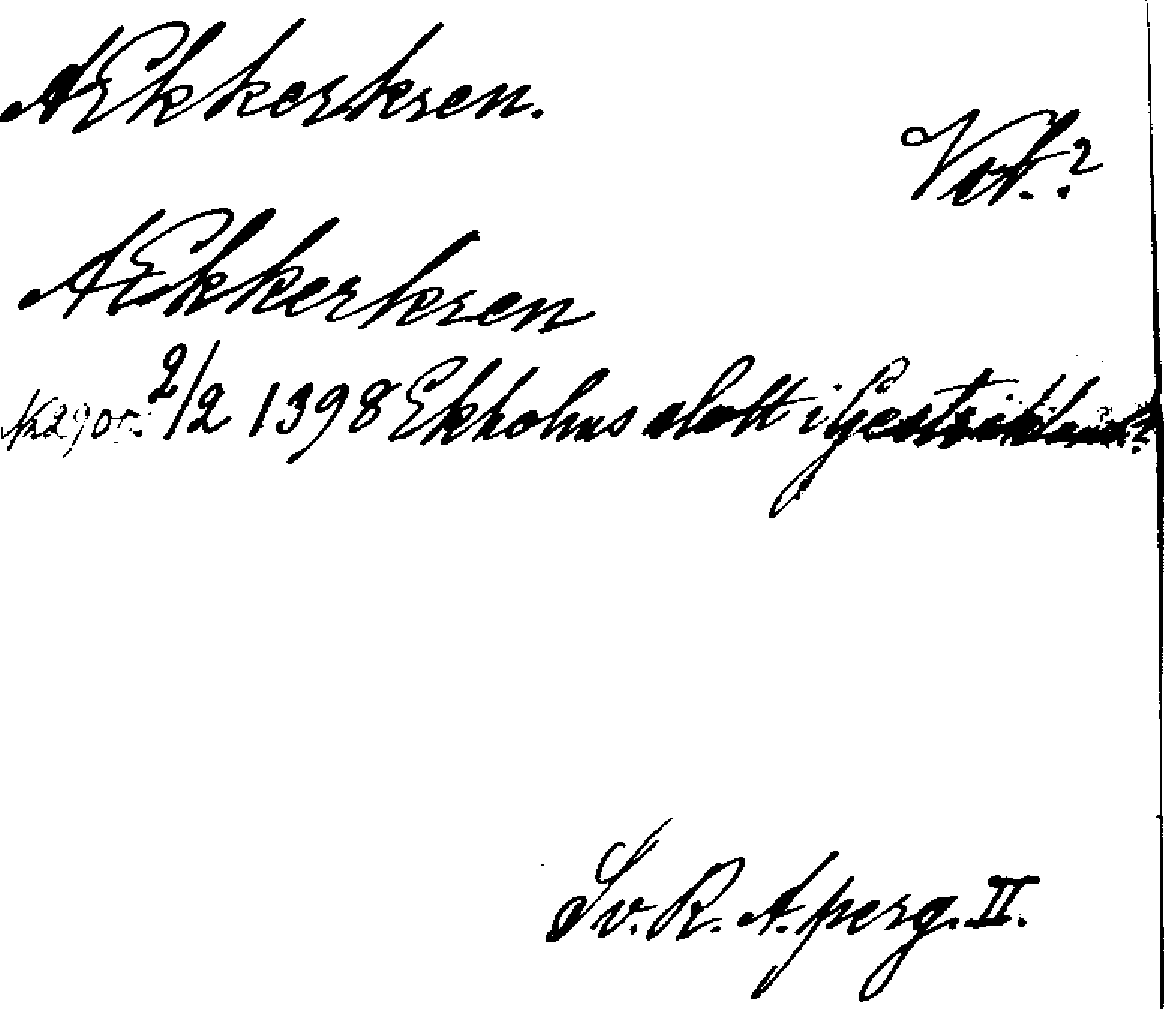 Ækkerkren.
Vst.?
Ækkerkren
N. 2905. 2/2 1398 Ekholms slott i Gestrikland?
Sv. R. A. perg. II.